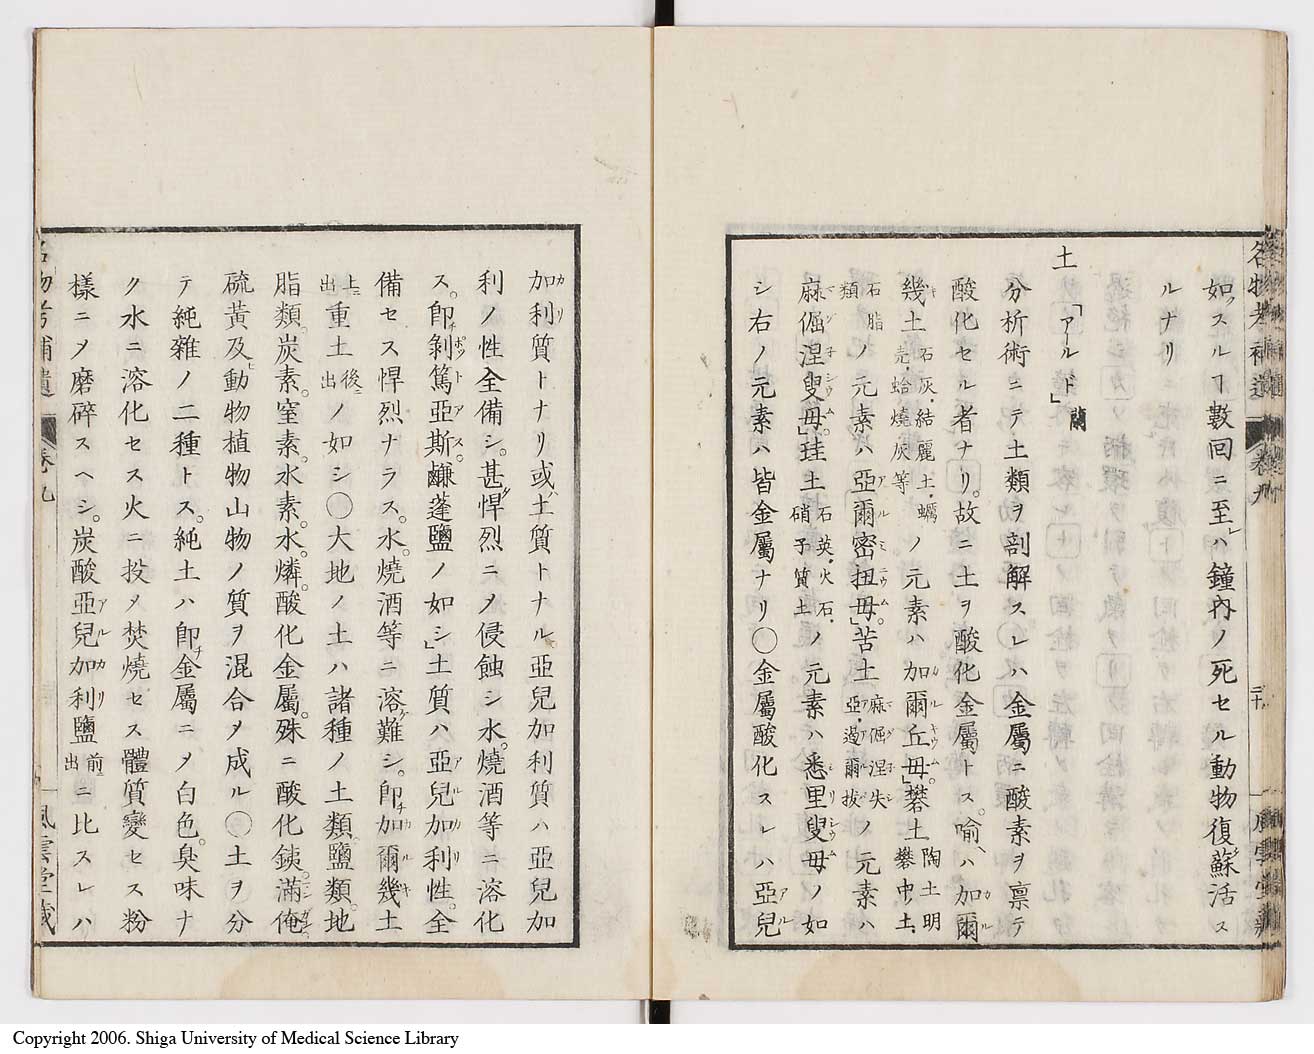 如クスルヿ數回ニ至レハ鐘內ノ死セル動物復蘇活ス
ルナリ
土「アールド」蘭
分析術ニテ土類ヲ剖解スレハ金屬ニ酸素ヲ禀テ
酸化セル者ナリ。故ニ土ヲ酸化金屬トス。喩ヘハ加爾
幾土石灰結麗土・蠣壳・蛤燒灰等ノ元素ハ加爾丘母」礬土陶土明礬中ノ土・
石脂類ノ元素ハ亞爾密扭母。」苦土麻倔涅失亞・過爾拔ノ元素ハ
麻倔涅叟母」硅土石英・火石・硝子質土ノ元素ハ悉里叟母ノ如
シ右ノ元素ハ皆金屬ナリ〇金屬酸化スレハ亞兒
加利質トナリ或ハ土質トナル亞兒加利質ハ亞兒加
利ノ性全備シ。甚タ悍烈ニメ侵蝕シ水。燒酒等ニ溶化
ス。卽チ剝篤亞斯。鹻蓬鹽ノ如シ」土質ハ亞兒加利性。全
備セス悍烈ナラス。水。燒酒等ニ溶ケ難シ。卽チ加爾幾土
上ニ出重土後ニ出ノ如シ〇大地ノ土ハ諸種ノ土類。鹽類。地
脂類。炭素。窒素。水素。水。燐。酸化金屬。殊ニ酸化銕。滿俺。
硫黃及ヒ動物植物山物ノ質ヲ混合メ成ル〇土ヲ分
テ純雜ノ二種トス。純土ハ卽チ金屬ニメ白色。臭味ナ
ク水ニ溶化セス火ニ投メ焚燒セス體質變セス粉
樣ニメ磨碎スヘシ。炭酸亞兒加利鹽前ニ出ニ比スレハ
名物考補遺 卷九
二十
風雲堂藏
Copyright 2006. Shiga University of Medical Science Library